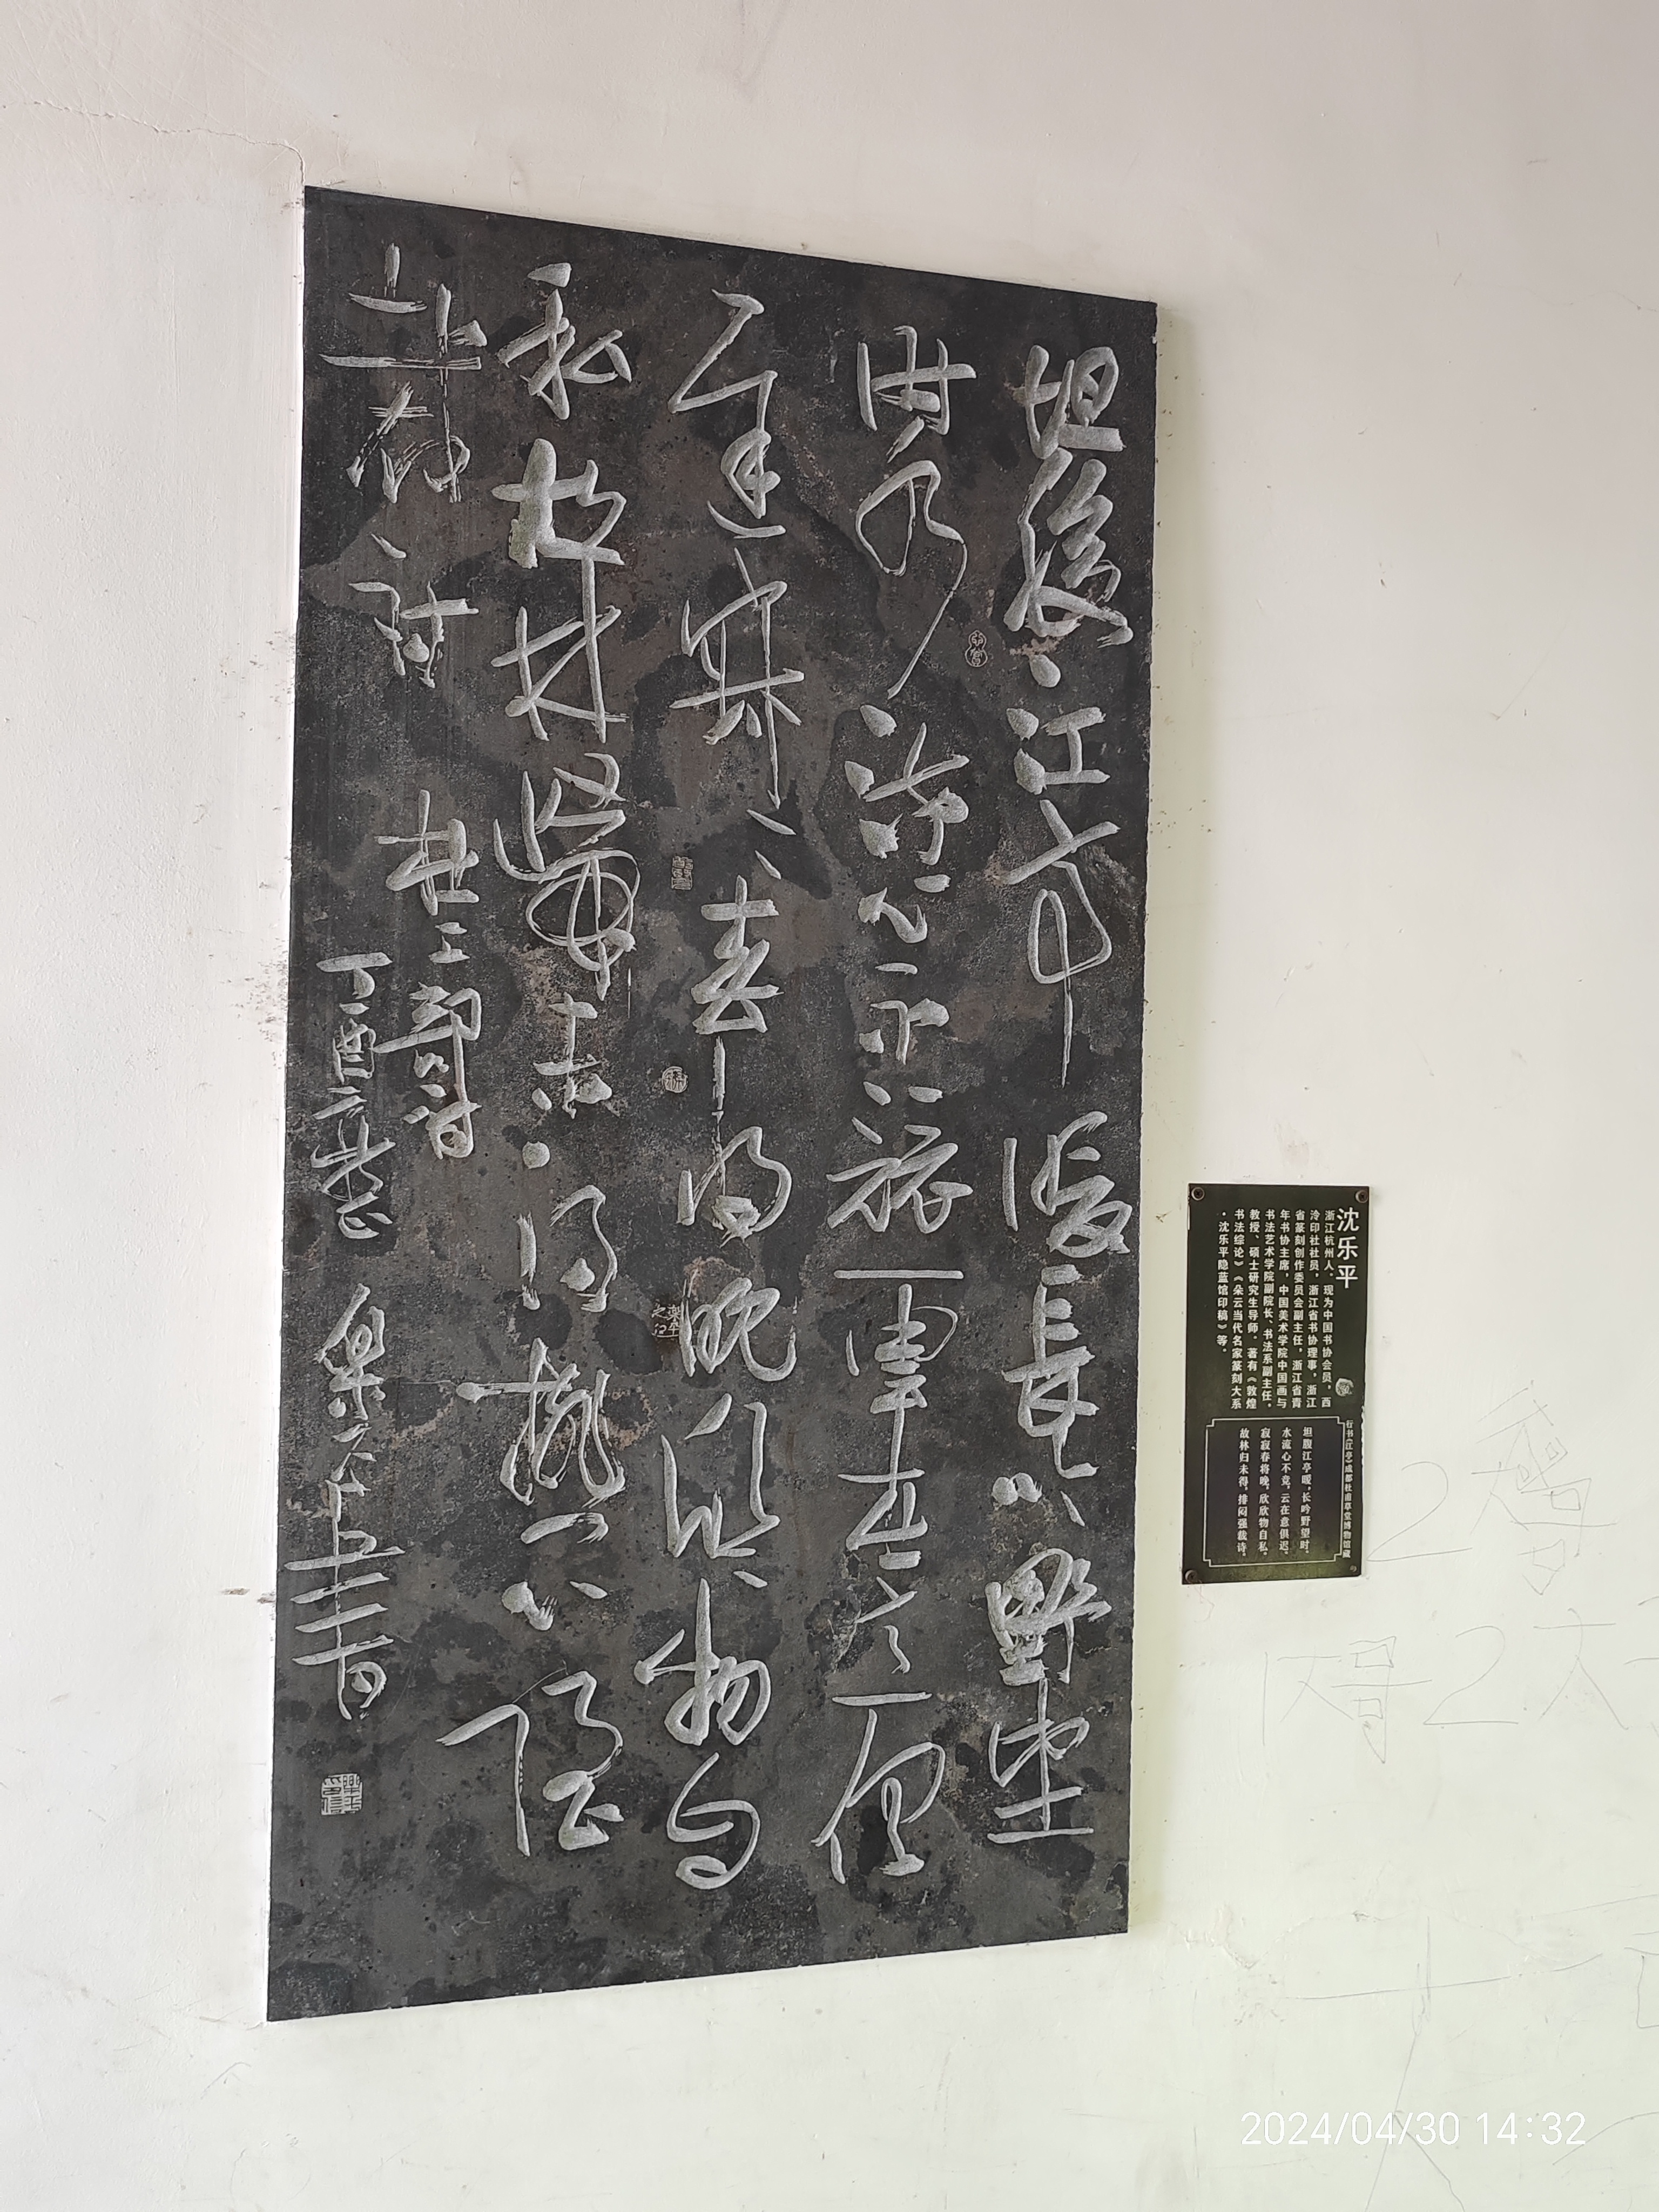 坦腹江亭暖長吟野望
時水流心不競雲在意俱
遲寂〻春將晚欣〻物自
私故林歸未得排悶強
裁詩 杜工部詩
丁酉 樂平
沈乐平
浙江杭州人，现为中国书协会员，西
泠印社社员，浙江省书协理事，浙江
省篆刻创作委员会副主任，浙江省青
年书协主席，中国美术学院中国画与
书法艺术学院副院长、书法系副主任，
教授、硕士研究生导师。著有《敦煌
书法综论》《朵云当代名家篆刻大系
·沈乐平隐蓝馆印稿》等。
行书《江亭》成都杜甫草堂博物馆藏
坦腹江亭暖，长吟野望时。
水流心不竞，云在意俱迟。
寂寂春将晚，欣欣物自私。
故林归未得，排闷强裁诗。
2024/04/30 14:32